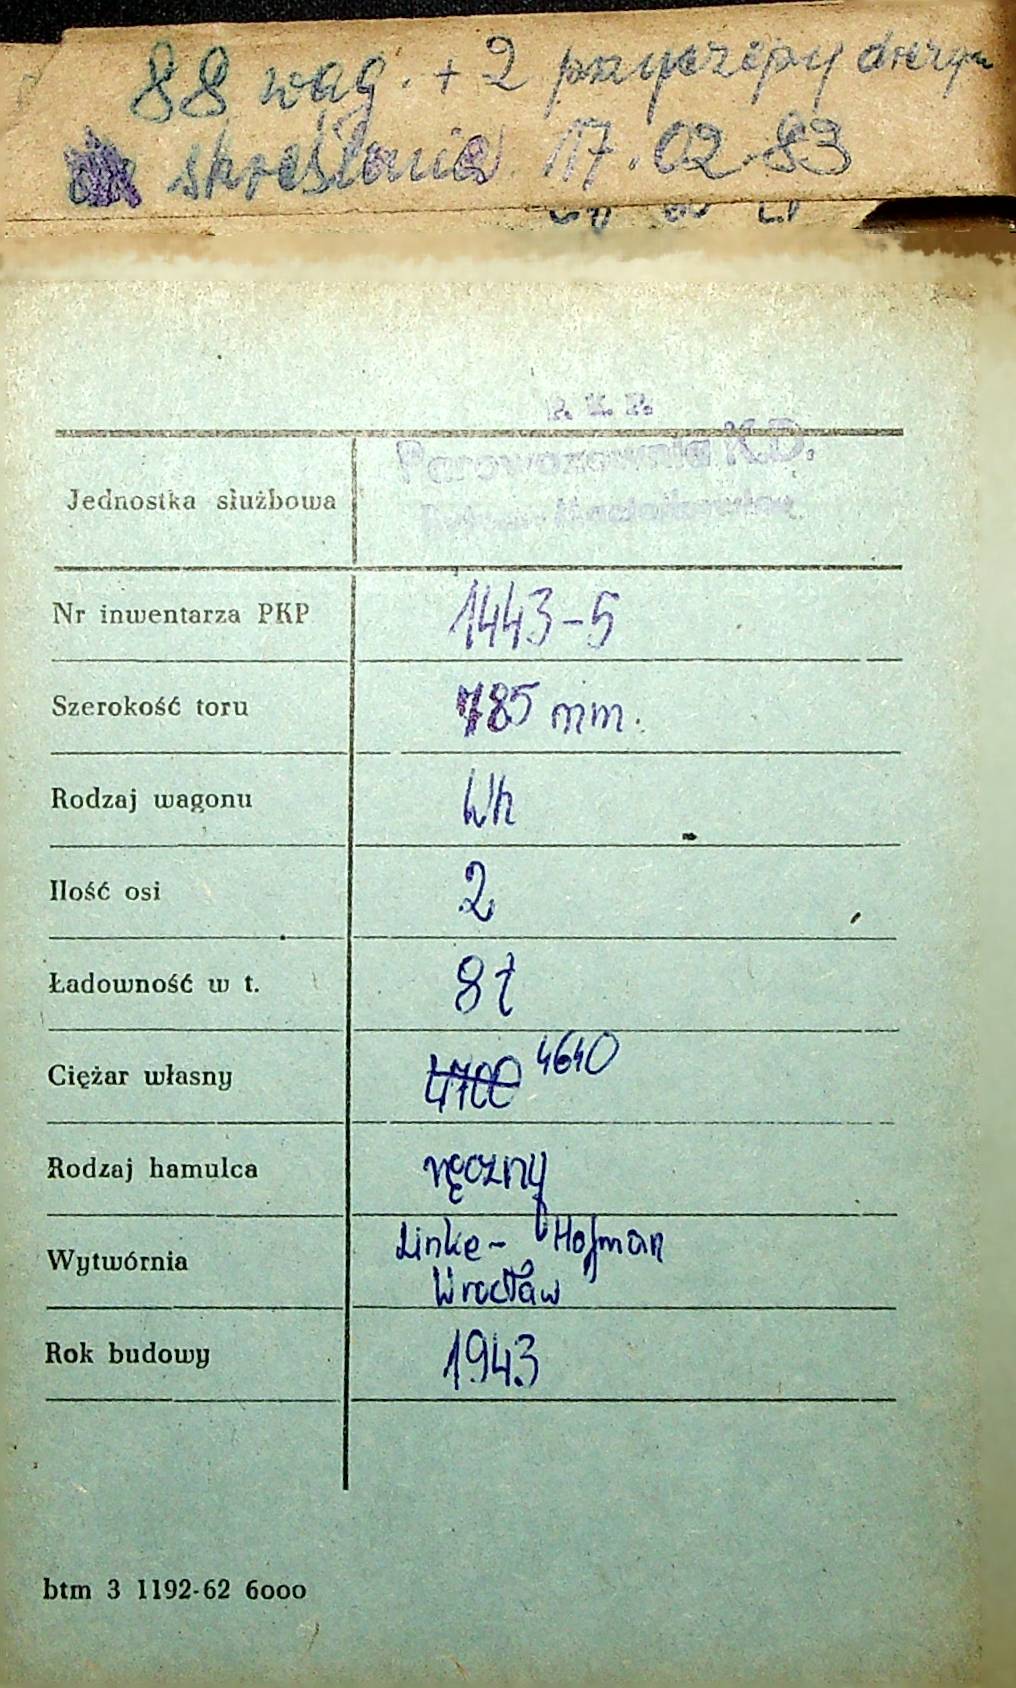 88 wag. + 2 przyczepy drezyn
skreślenie 17.02.83
P. K. P.
Parowozownia K.D.
Jednostka służbowa
Nr inwentarza PKP 1443-5
Szerokość toru 785 mm.
Rodzaj wagonu Wh
Ilość osi 2
Ładowność w t. 8 t
Ciężar własny 4700 4640
Rodzaj hamulca ręczny
Wytwórnia Linke- Hofman
Wrocław
Rok budowy 1943
btm 3 1192-62 6000